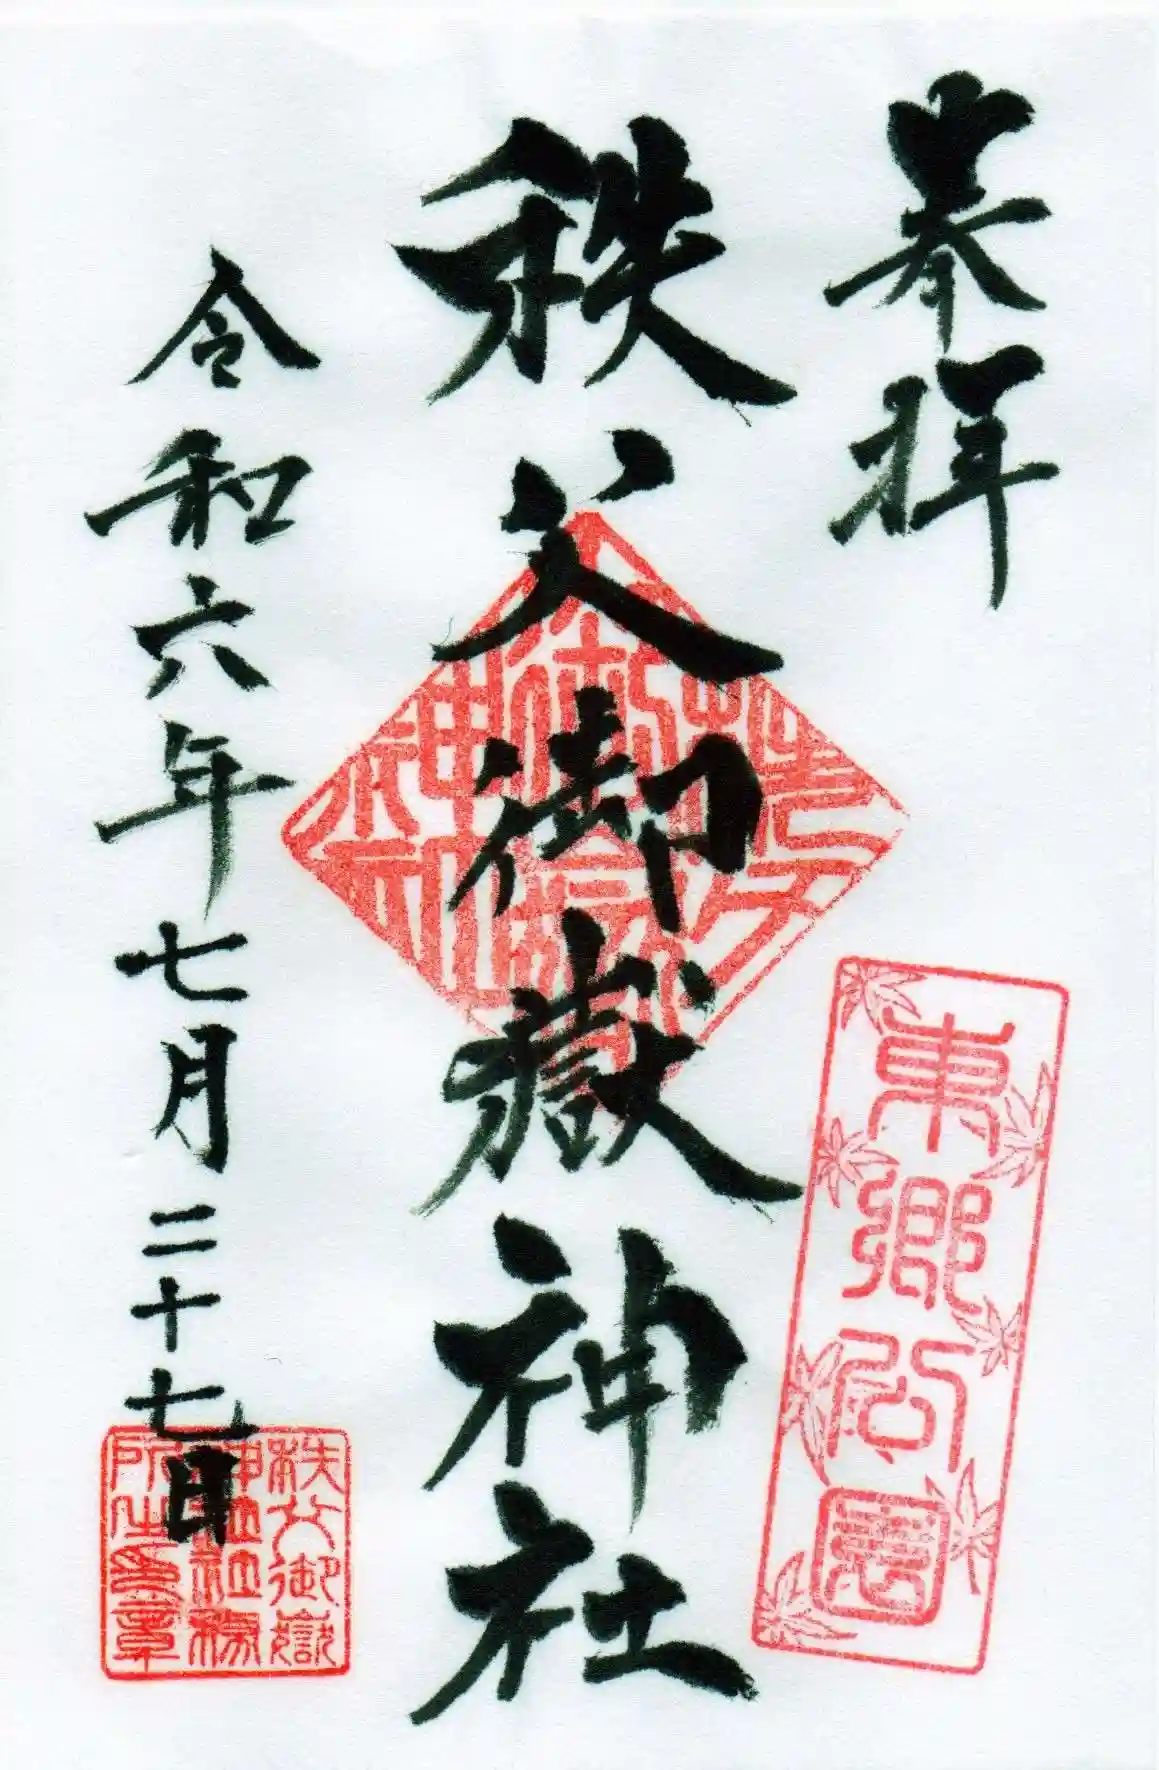 奉拝
東郷公園
秩父御嶽神社
令和六年七月二十七日
秩父御嶽
神社社務
所之印章